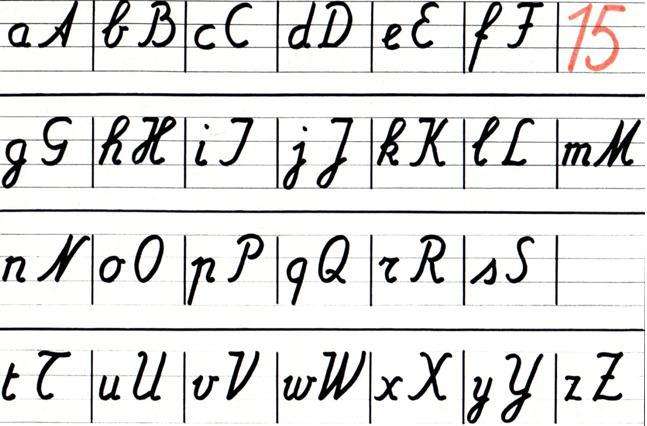 aA bB cC dD eE fF 15
gG hH iI jJ kK lL mM
nN oO pP qQ rR sS
tT uU vV wW xX yY zZ